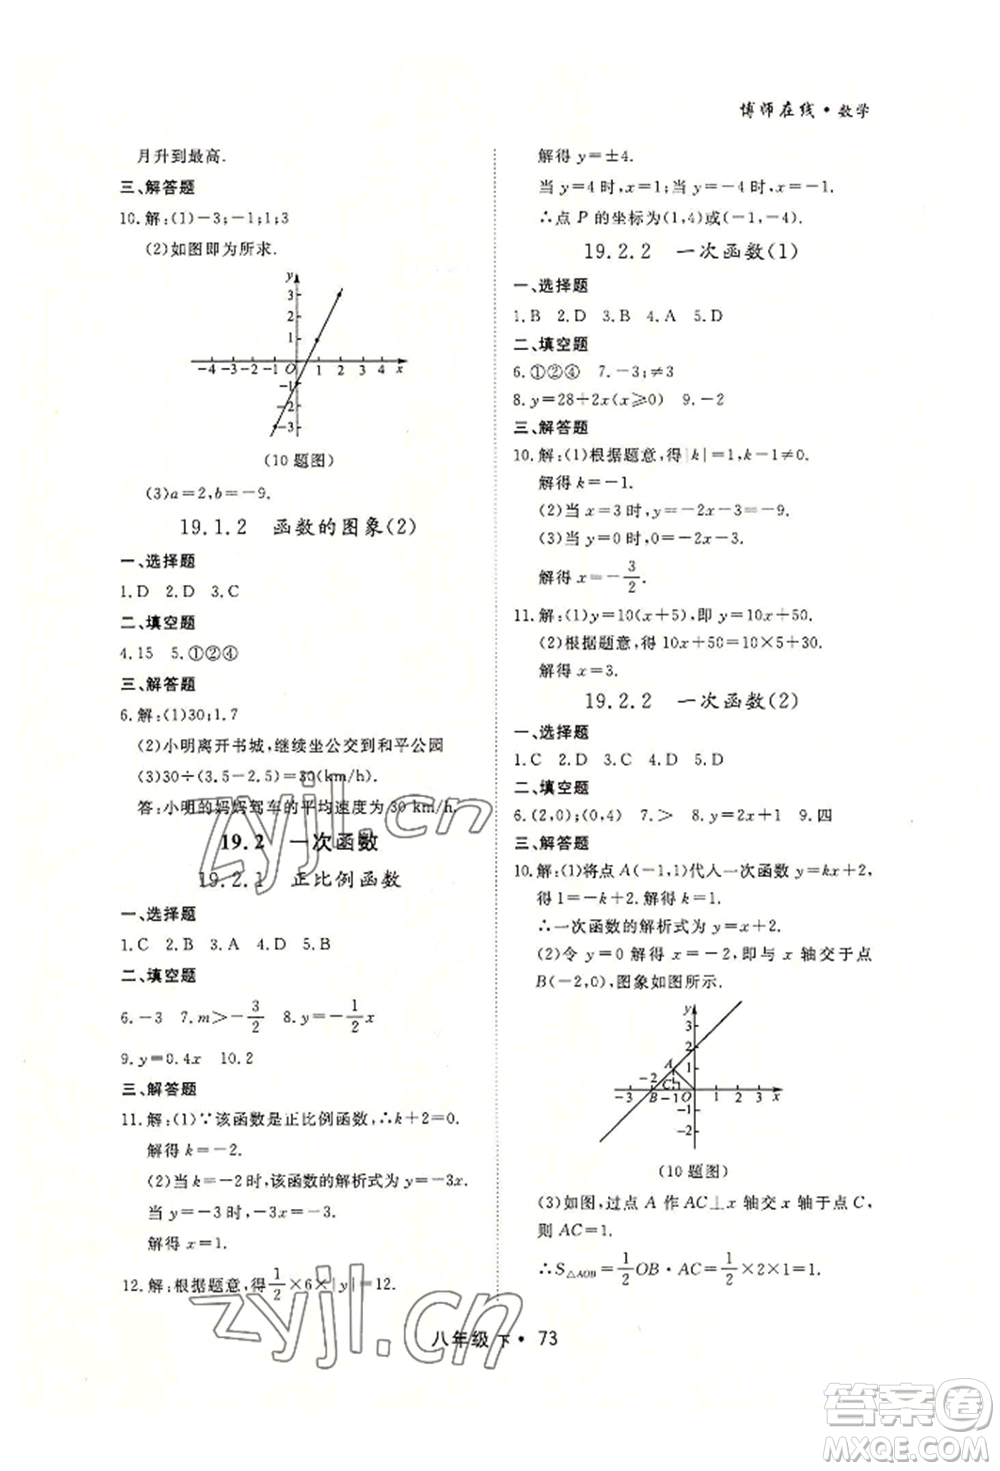 博师在线·数学
月升到最高.
三、解答题
10.解:(1)-3;-1;1;3
(2)如图即为所求.
y
3
2
1
-4 -3 -2 -1 O 1 2 3 4 x
-1
-2
-3
(10题图)
(3)a=2,b=-9.
19.1.2 函数的图象(2)
一、选择题
1.D 2.D 3.C
二、填空题
4.15 5.①②④
三、解答题
6.解:(1)30;1.7
(2)小明离开书城,继续坐公交到和平公园
(3)30÷(3.5-2.5)=30(km/h).
答:小明的妈妈驾车的平均速度为30 km/h.
19.2 一次函数
19.2.1 正比例函数
一、选择题
1.C 2.B 3.A 4.D 5.B
二、填空题
6.-3 7.m>-3/2 8.y=-1/2x
9.y=0.4x 10.2
三、解答题
11.解:(1)∵该函数是正比例函数,k+2=0.
解得k=-2.
(2)当k=-2时,该函数的解析式为y=-3x.
当y=-3时,-3x=-3.
解得x=1.
12.解:根据题意,得1/2×6×|y|=12.
解得y=±4.
当y=4时,x=1;当y=-4时,x=-1.
∴点P的坐标为(1,4)或(-1,-4)
19.2.2 一次函数(1)
一、选择题
1.B 2.D 3.B 4.A 5.D
二、填空题
6.①②④ 7.-3;≠3
8.y=28+2x(x⩾0) 9.-2
三、解答题
10.解:(1)根据题意,得|k|=1,k-1≠0.
解得k=-1.
(2)当x=3时,y=-2x-3=-9.
(3)当y=0时,0=-2x-3.
解得x=-3/2.
11.解:(1)y=10(x+5),即y=10x+50.
(2)根据题意,得10x+50=10×5+30.
解得x=3.
19.2.2 一次函数(2)
一、选择题
1.C 2.D 3.D 4.D 5.D
二、填空题
6.(2,0);(0,4) 7.> 8.y=2x+1 9.四
三、解答题
10.解:(1)将点A(-1,1)代人一次函数y=kx+2,
得1=-k+2.解得k=1.
∴一次函数的解析式为y=x+2.
(2)令y=0解得x=-2,即与x轴交于点
B(-2,0),图象如图所示.
y
3
2
A 1
-2 C
-3 B -1 O 1 2 3 x
-1
-2
(10题图)
(3)如图,过点A作AC⊥x轴交x轴于点C,
则AC=1.
∴S△AOB=1/2OB·AC=1/2×2×1=1.
八年级 下·73
zyjl.cn
zyjl.cn
答案圈
MXQE.COM